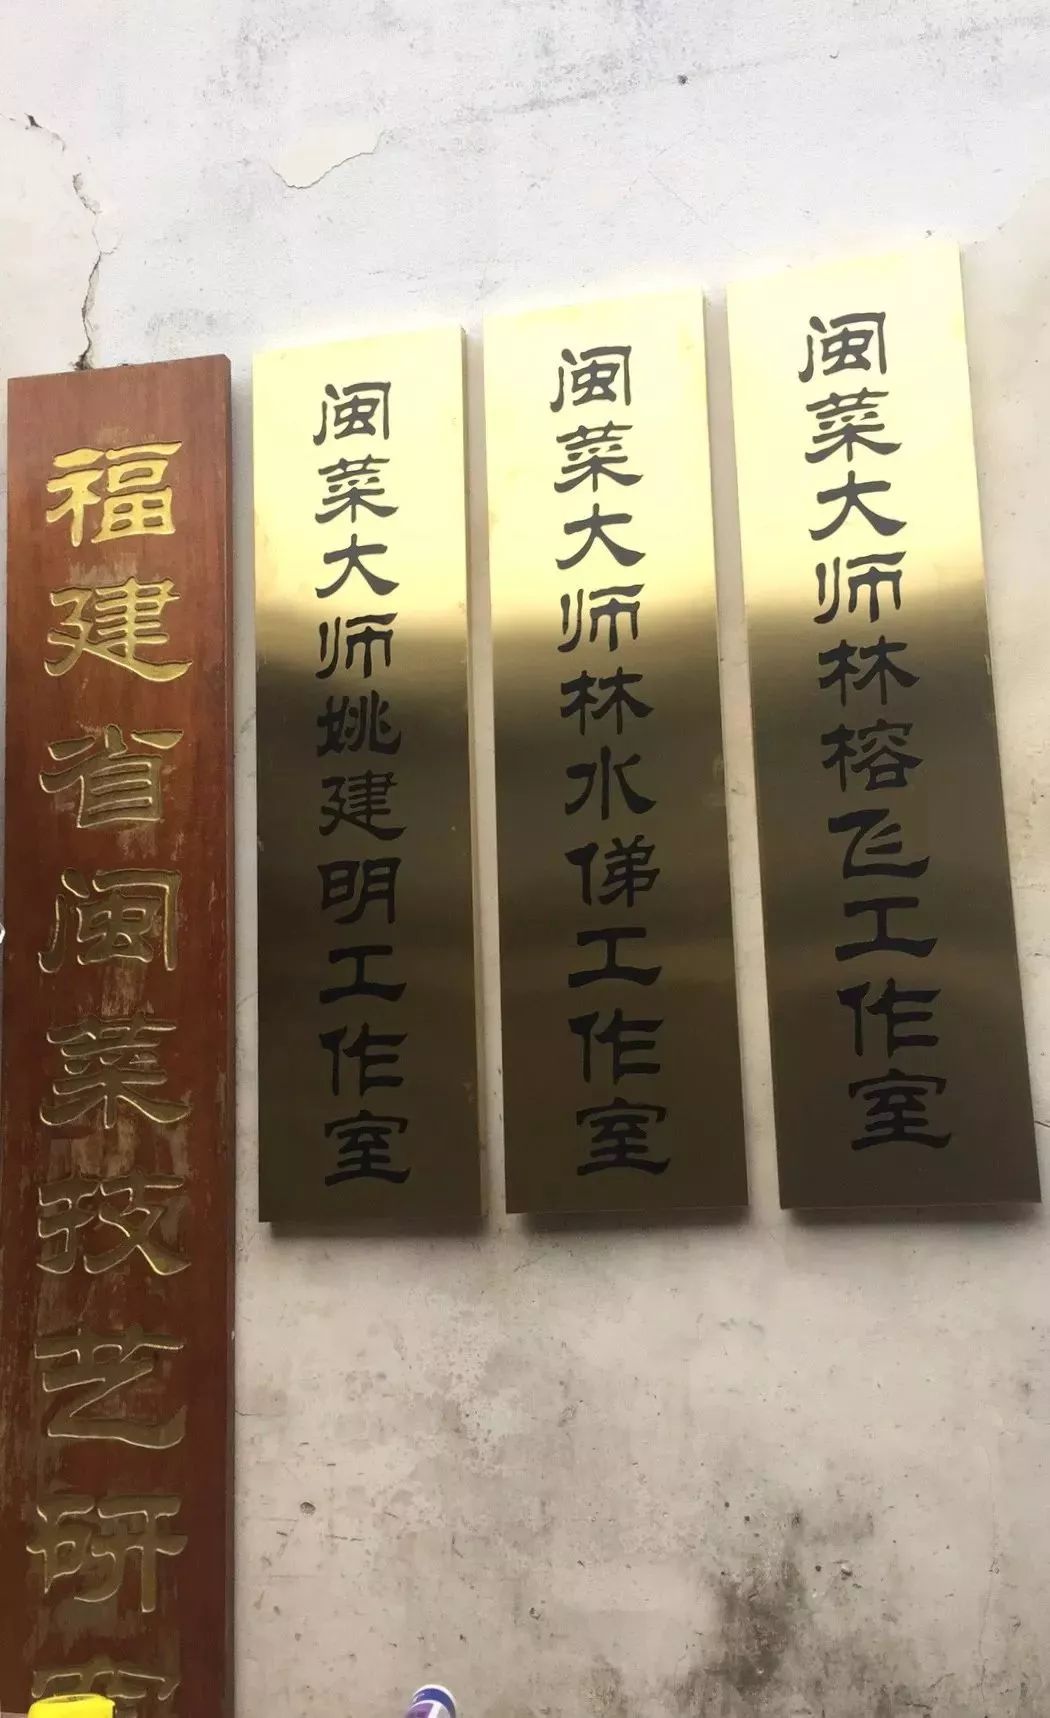 福建省闽菜技艺研究
闽菜大师姚建明工作室
闽菜大师林水俤工作室
闽菜大师林榕飞工作室